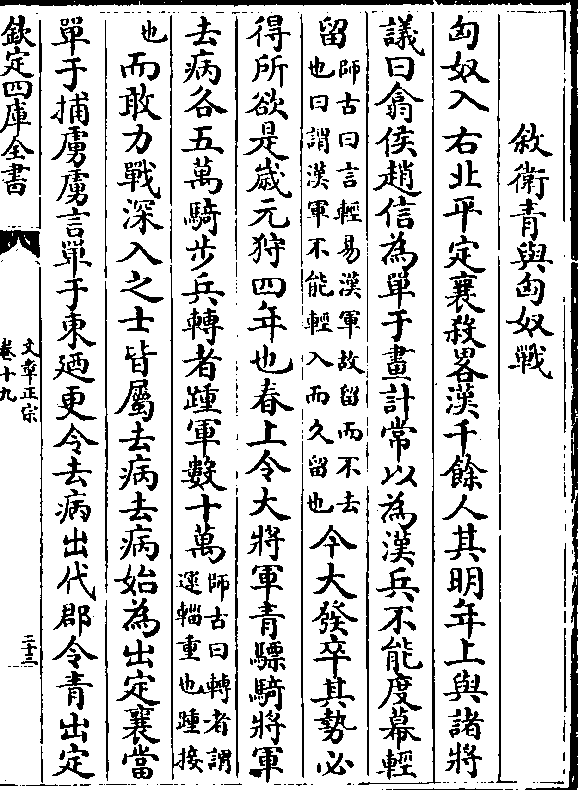 敘衛青與匈奴戰
匈奴入右北平定襄殺畧漢千餘人其明年上與諸將
議曰翕侯趙信為單于畫計常以為漢兵不能度幕輕
留師古曰言輕易漢軍故留而不去也曰謂漢軍不能輕入而久留也今大發卒其勢必
得所欲是歲元狩四年也春上令大將軍青驃騎將軍
去病各五萬騎步兵轉者踵軍數十萬師古曰轉者謂運輜重也踵接
也而敢力戰深入之士皆屬去病去病始為出定襄當
單于捕虜虜言單于東廼更令去病出代郡令青出定
欽定四庫全書
文章正宗
卷十九
二十三